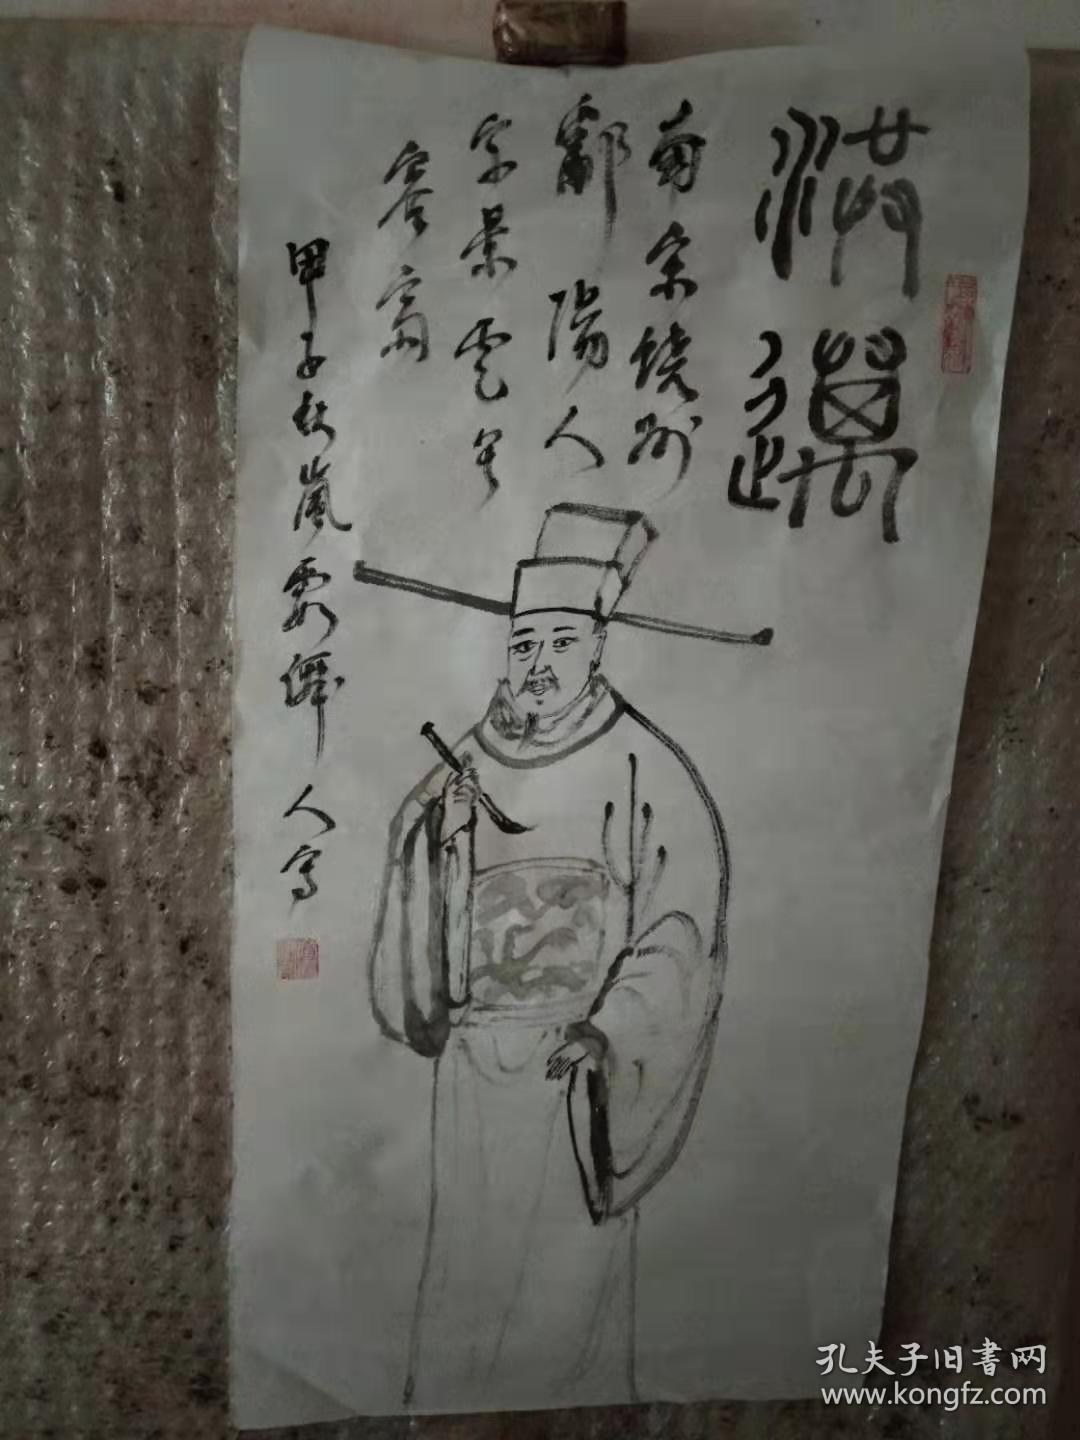 洪邁
南宋饒州
鄱陽人
字景盧号
容斋
甲子秋嵐霞人写
孔夫子旧書网
www.kongfz.com